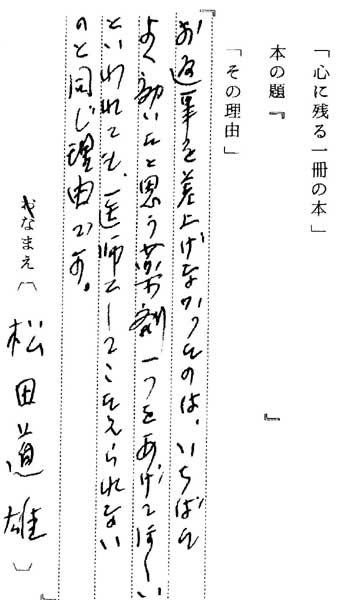 「心に残る一冊の本」
本の題『 』
「その理由」
お返事を差上げなかったのは、いちばん
よく効いたと思う薬剤一つをあげてほしい
といわれても、医師としてこたえられない
のと同じ理由です。
おなまえ〔松田道雄〕